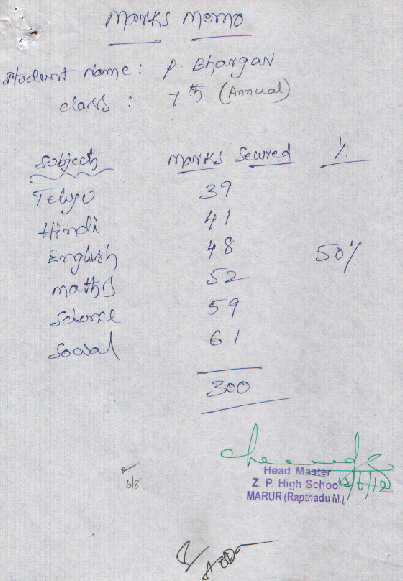 Marks Memo
Student name : P. Bhargavi
class : 7th (Annual)
Subject Marks Secured %
Telugu 39
Hindi 41
English 48 50%
maths 52
Science 59
Social 61
300
Head Master
Z. P. High School
MARUR (Rapthadu M.)